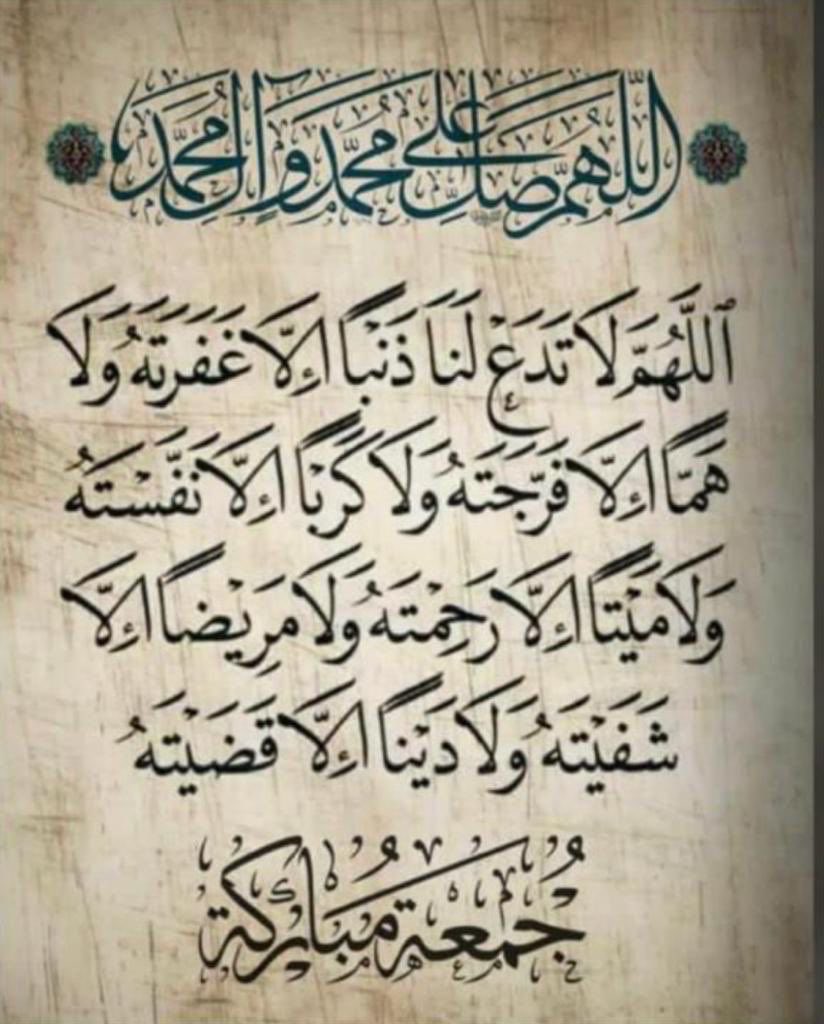 اللّٰهُمَّ صَلِّ عَلَى مُحَمَّدٍ وَآلِ مُحَمَّدٍ
ٱللَّهُمَّ لَا تَدَعْ لَنَا ذَنْبًا اِلَّا غَفَرَتَهُ وَلَا
هَمًّا اِلَّا فَرَّجَتَهُ وَلَا كَرْبًا اِلَّا نَفَّسْتَهُ
وَلَا مَيْتًا اِلَّا رَحِمْتَهُ وَلَا مَرِيْضًا اِلَّا
شَفَيْتَهُ وَلَا دَيْنًا اِلَّا قَضَيْتَهُ
جُمعة مُباركة